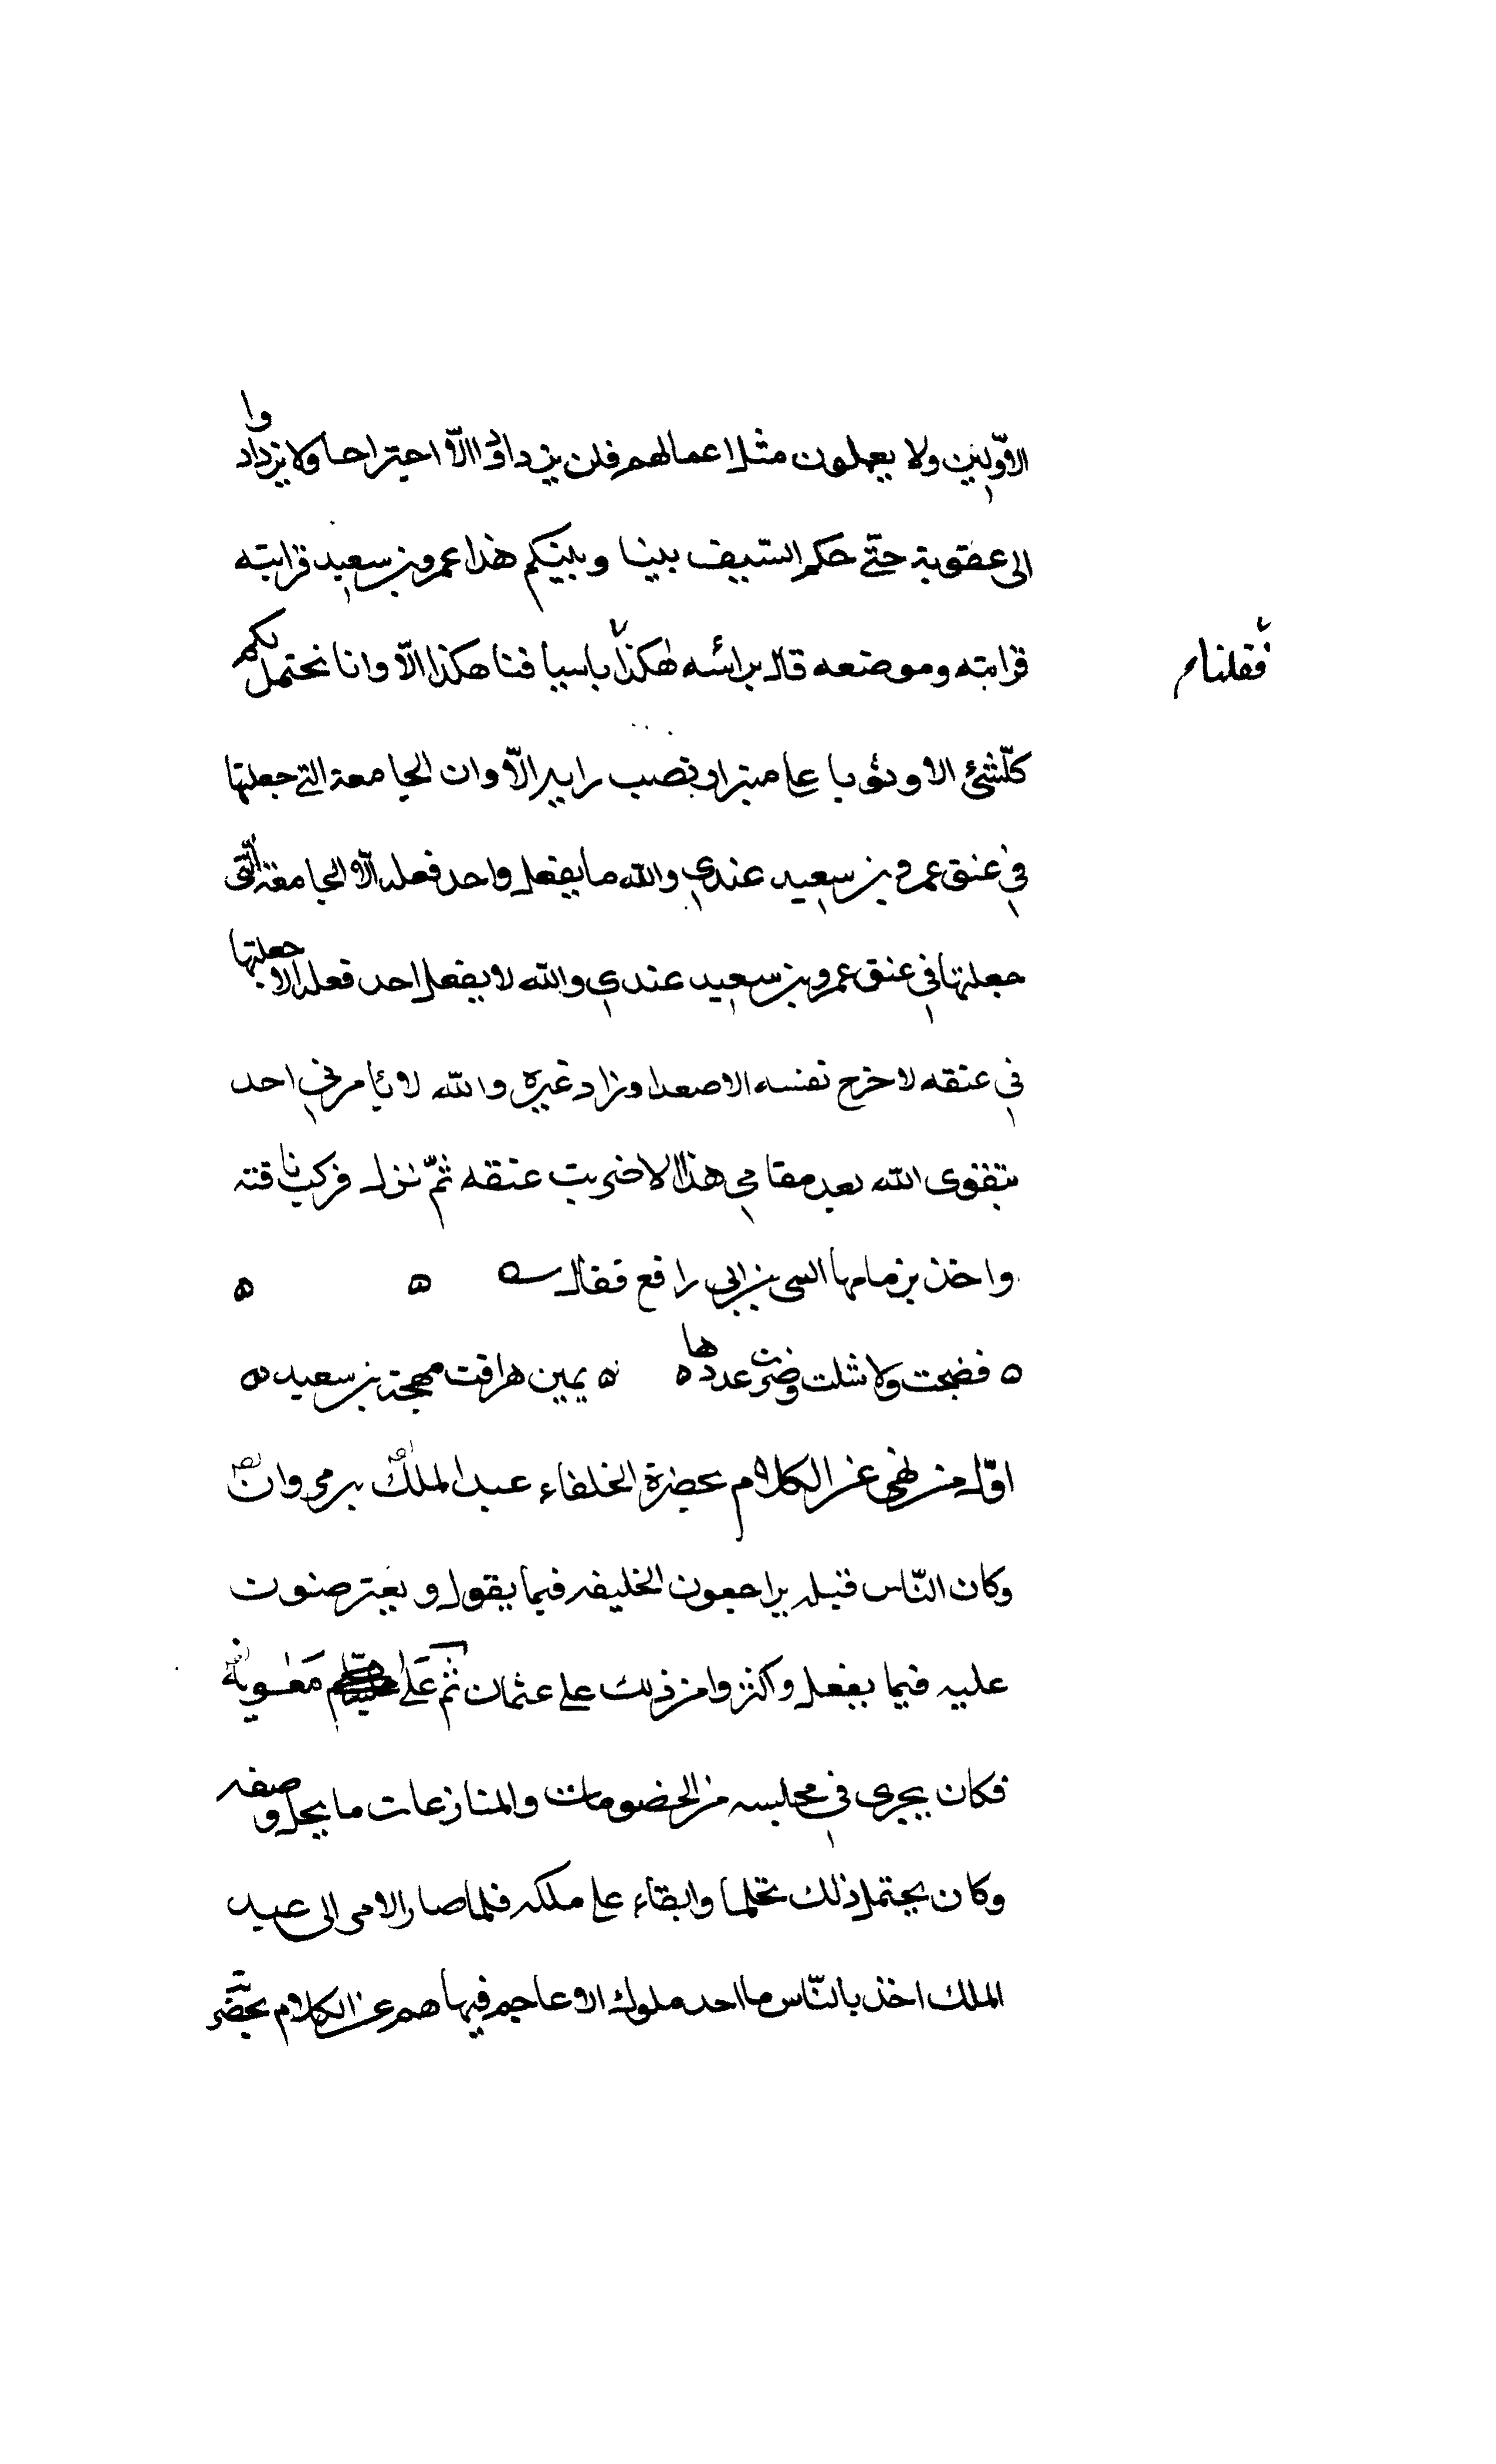 الاوّلين ولا يعملون مثل اعمالهم فلن يزدادوا الّا اجتراحا ولا يزدادوا
الى عقوبة حتّى حكم السّيف بيننا وبينكم هذا عمرو بن سعيد قرابته
قرابته وموضعه قال برائسه هكذا باسيافنا هكذا الّا وانا نحتمل لكم
فقلنا م
كلّشئ الا وثوبا على منبر او نصب راية الّا وان الجامعة التي جعلتها
في عنق عمرو بن سعيد عندي والله ما يفعل واحد فعله الّا الجامعة الّتى
جعلتها في عنق عمرو بن سعيد عندي والله لا يفعل احد فعله الا جعلتها
في عنقه لا خرج نفسه الا صعدا وزاد غيره والله لا يأمرني احد
بتقوى الله بعد مقامي هذا الا ضربت عنقه ثمّ نزل فركب ناقته
واخذ بزمامها بن ابى رافع فقال ه ه ه
ه فضجت ولا شلت وضرت عددها ه ه يمين هراقت مهجة بن سعيد ه
اوّل من نهى عن الكلام بحضرة الخلفاء عبد الملك بن مروان
وكان النّاس قبله يراجعون الخليفه فيما يقول ويعترضون
عليه فيما يفعل واكثروا من ذلك على عثمان ثم على معوية
فكان يجرى في مجلسه من الخصومات والمنازعات ما يجل وصفه
وكان يحتمل ذلك تحلما وابقاء على ملكه فلما صار الامر الى عبد
الملك اخذ بالنّاس ما احد ملوك الاعاجم فيها هم عن الكلام بحضر